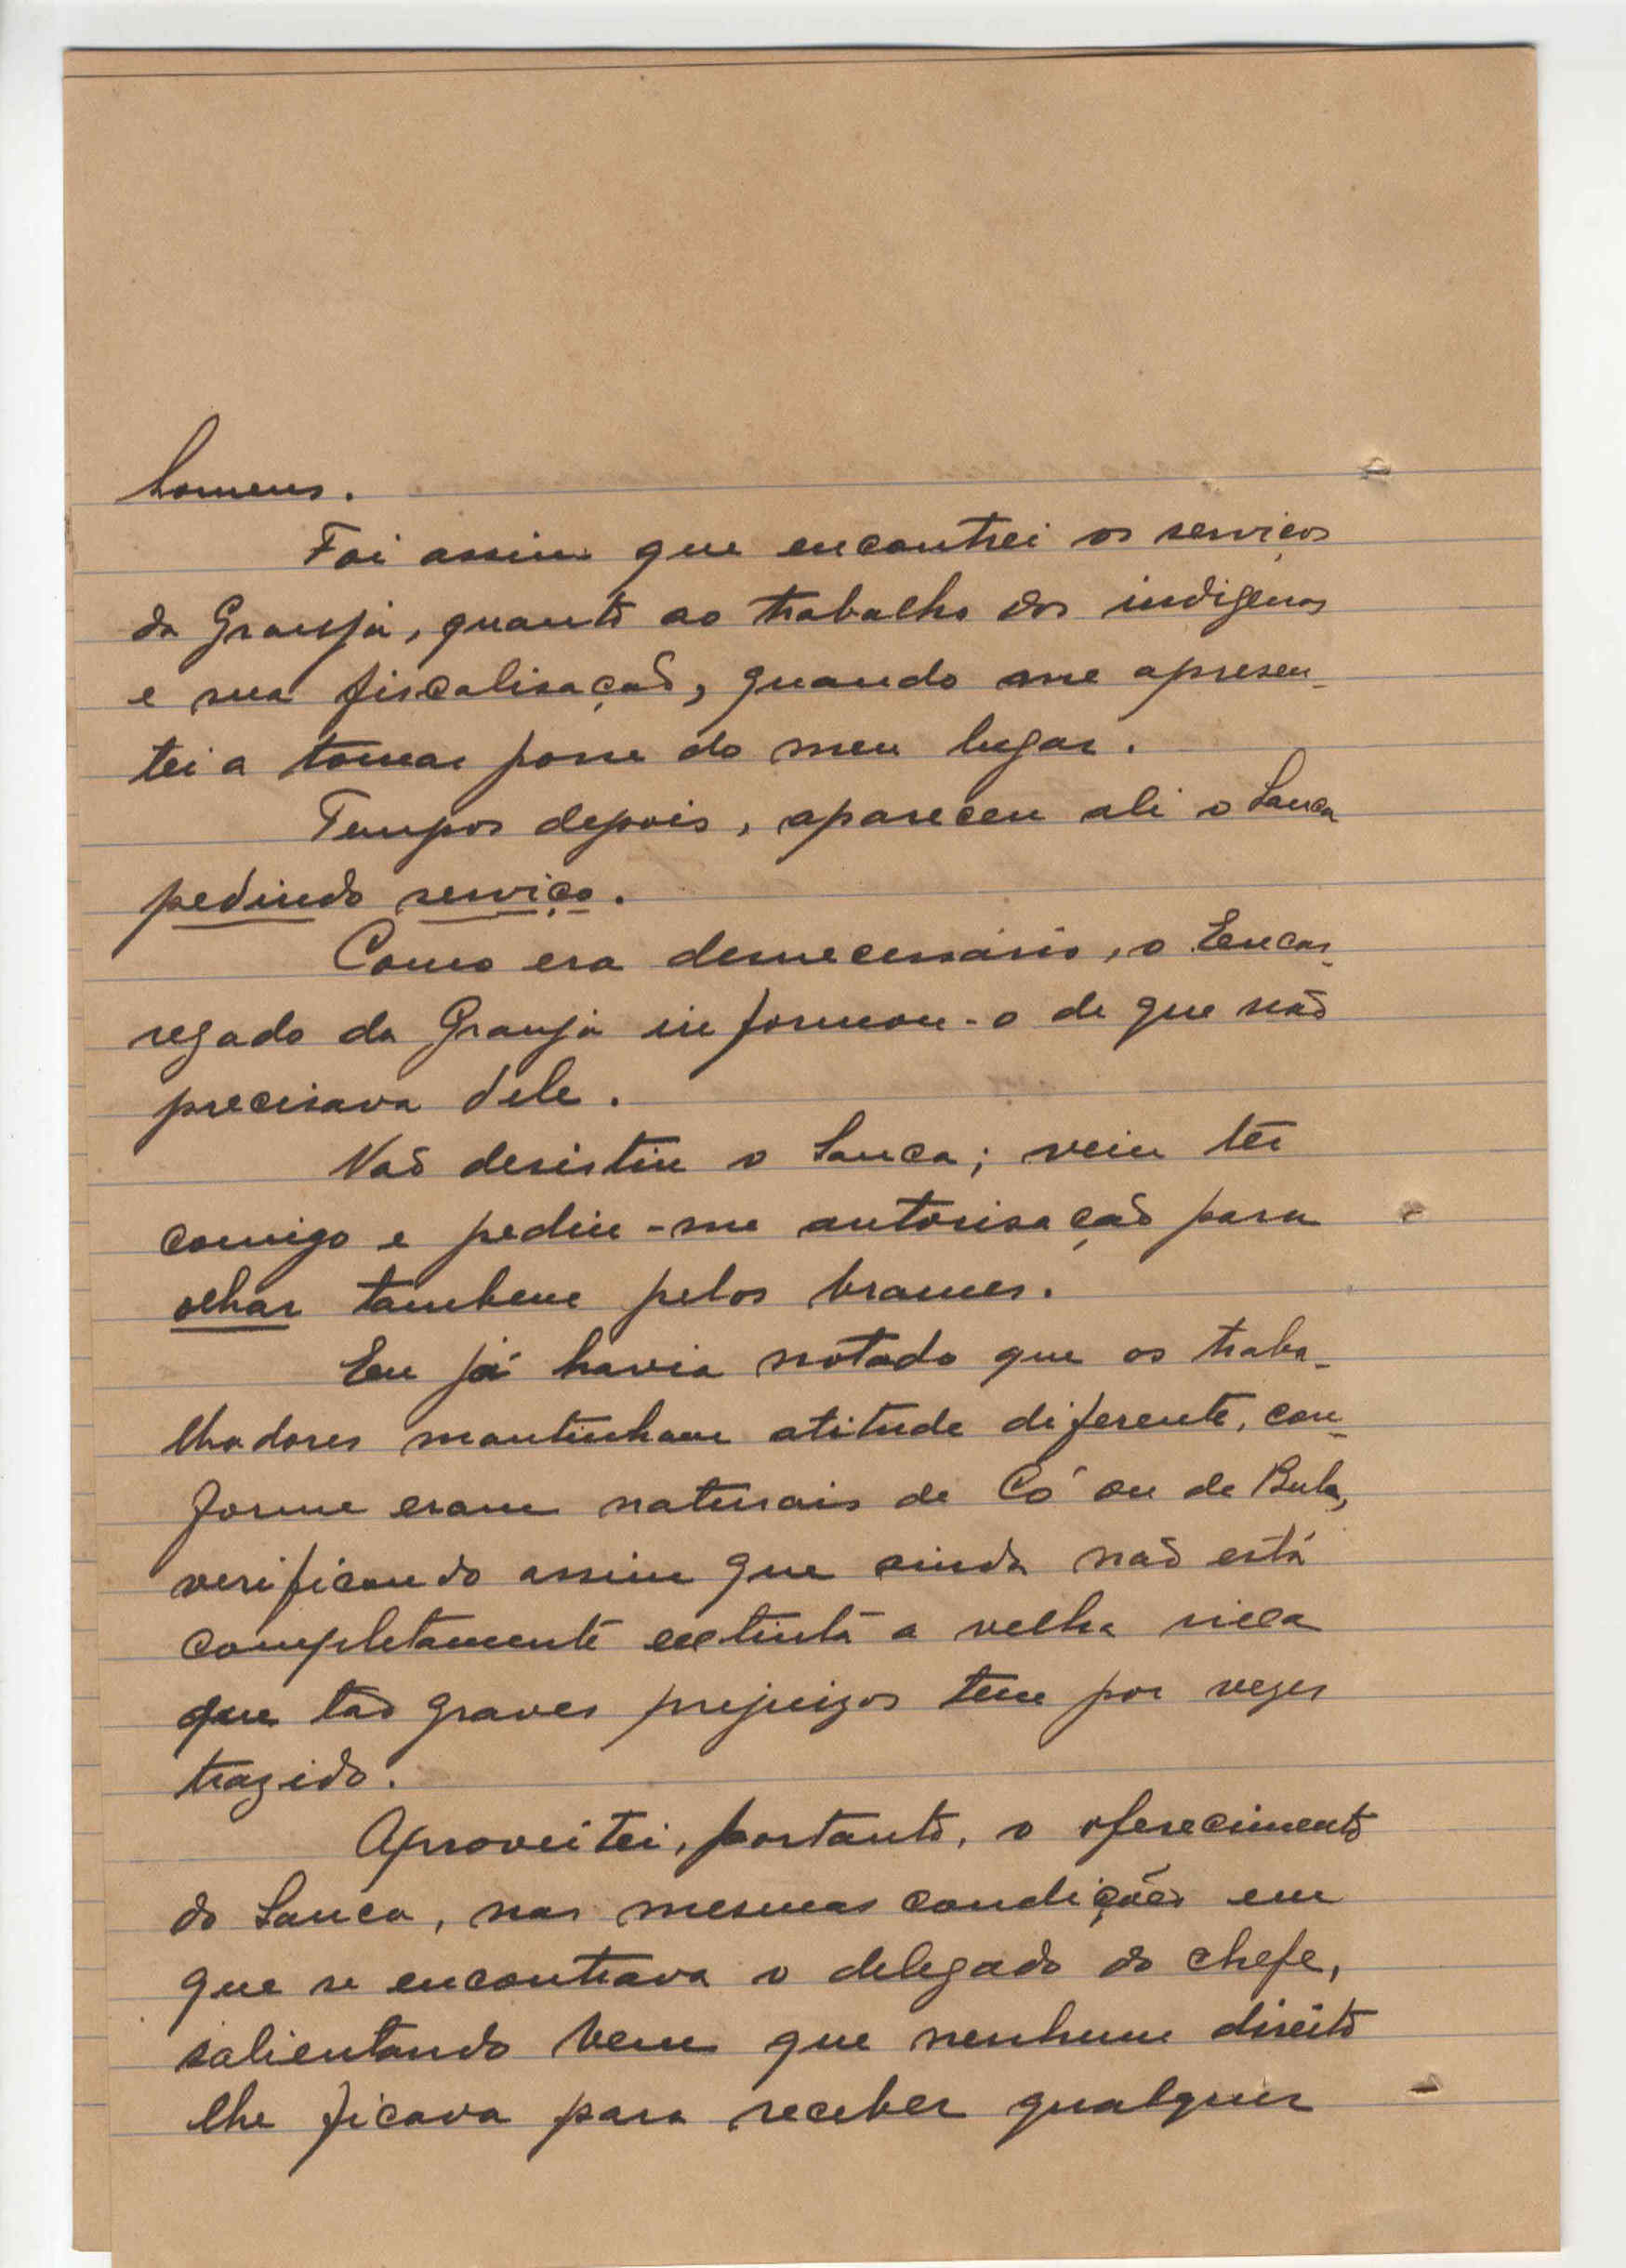 homens.
Foi assim que encontrei os serviços
da Granja, quanto ao trabalho dos indigenas
e sua fiscalisação, quando me apresen-
tei a tomar posse do meu lugar.
Tempos depois, apareceu ali o Sanca
pedindo serviço.
Como era desnecessário, o Encar-
regado da Granja informou-o de que não
precisava dele.
Não desistiu o Sanca; veiu ter
comigo e pediu-me autorisação para
olhar tambem pelos brames.
Eu já havia notado que os traba-
lhadores mantinham atitude diferente, con-
forme eram naturais de Có ou de Bula,
verificando assim que ainda não está
completamente extinta a velha rixa
que tão graves prejuizos tem por vezes
trazido.
Aproveitei, portanto, o oferecimento
do Sanca, nas mesmas condições em
que se encontrava o delegado do chefe,
salientando bem que nenhum direito
lhe ficava para receber qualquer